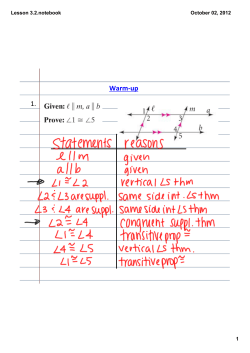 Lesson 3.2.notebook
October 02, 2012
Warm-up
1. Given: ℓ ∥ m, a ∥ b
Prove: ∠1 ≅ ∠5
1 ℓ m a
2 3
4 b
5
Statements reasons
ℓ∥m given
a∥b given
∠1 ≅ ∠2 vertical ∠s thm
∠2 & ∠3 are suppl. same side int. ∠s thm
∠3 & ∠4 are suppl. same side int ∠s thm
∠2 ≅ ∠4 congruent suppl. thm
∠1 ≅ ∠4 transitive prop ≅
∠4 ≅ ∠5 vertical ∠s thm.
∠1 ≅ ∠5 transitive prop ≅
1